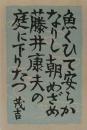 魚くひて安らか
なりし朝めざめ
藤井康夫の
庭に下りたつ
茂吉